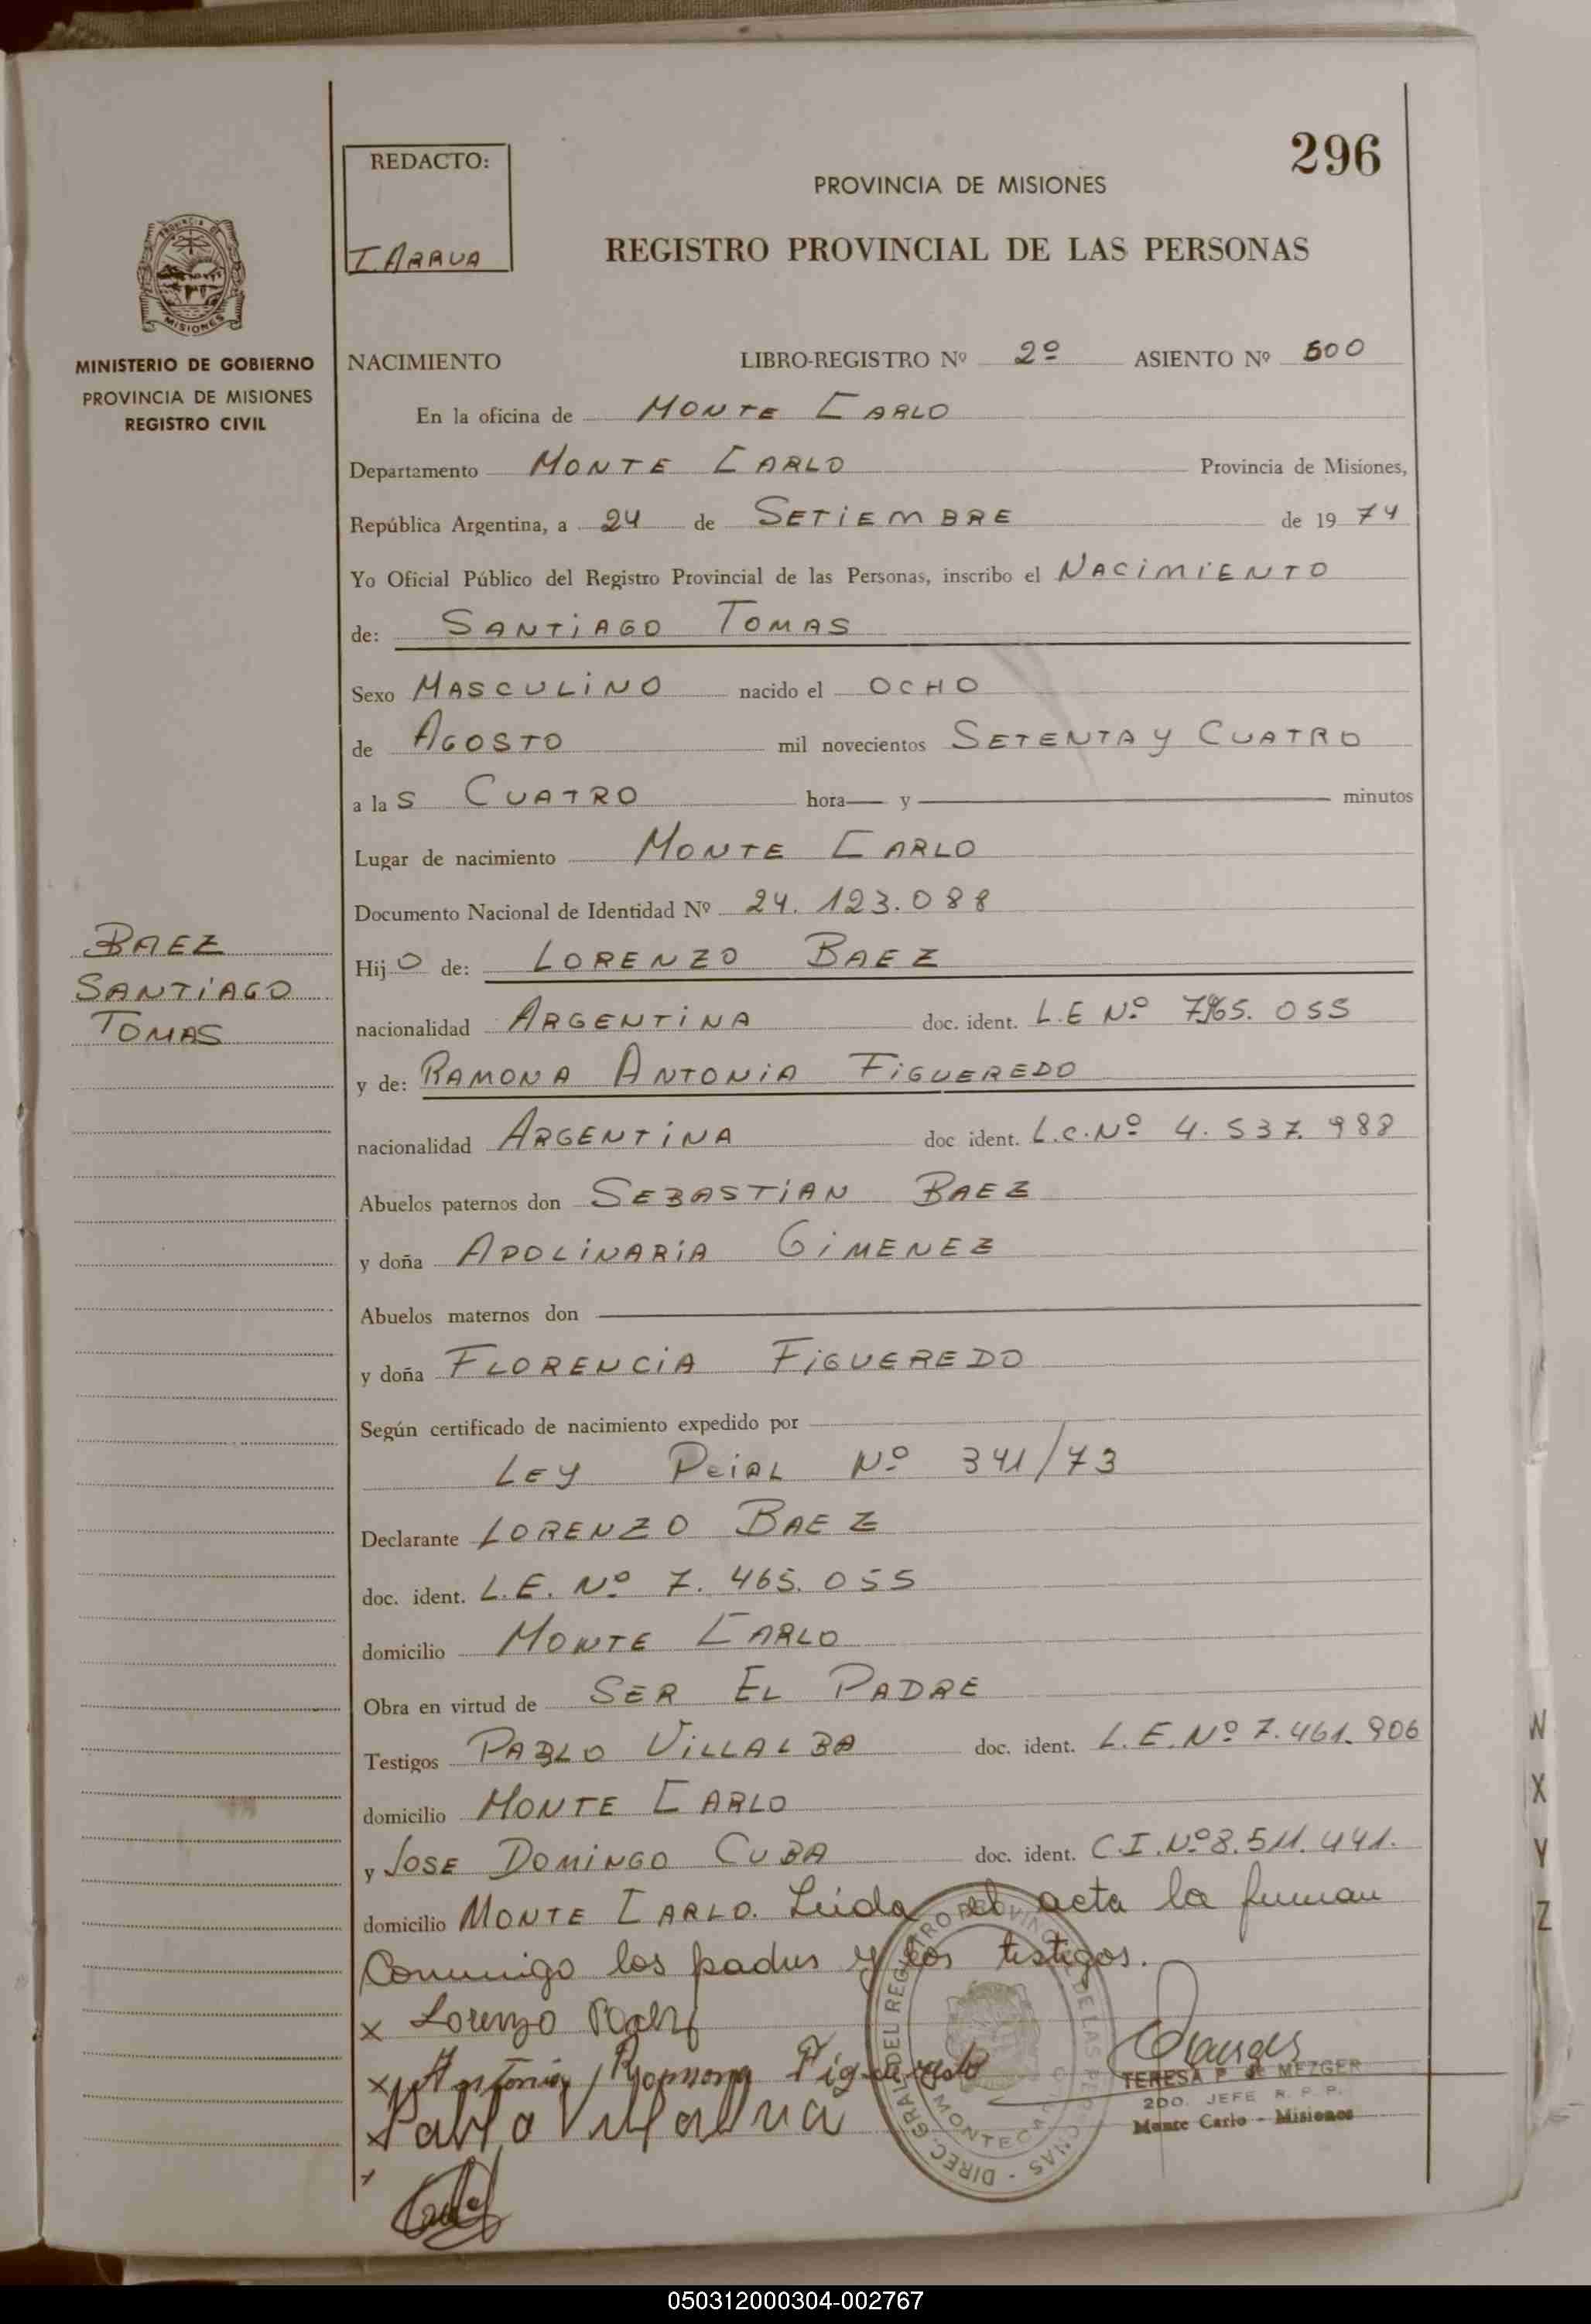 296
REDACTO:
I. ARRUA
PROVINCIA DE MISIONES
REGISTRO PROVINCIAL DE LAS PERSONAS
PROVINCIA DE
MISIONES
MINISTERIO DE GOBIERNO
PROVINCIA DE MISIONES
REGISTRO CIVIL
NACIMIENTO LIBRO-REGISTRO Nº 2º ASIENTO Nº 500
En la oficina de MONTE CARLO
Departamento MONTE CARLO Provincia de Misiones,
República Argentina, a 24 de SETIEMBRE de 19 74
Yo Oficial Público del Registro Provincial de las Personas, inscribo el NACIMIENTO
de: SANTIAGO TOMAS
Sexo MASCULINO nacido el OCHO
de AGOSTO mil novecientos SETENTA Y CUATRO
a las CUATRO hora — y — minutos
Lugar de nacimiento MONTE CARLO
Documento Nacional de Identidad Nº 24.123.088
BAEZ
SANTIAGO
TOMAS
Hijo de: LORENZO BAEZ
nacionalidad ARGENTINA doc. ident. L.E Nº
y de: RAMONA ANTONIA FIGUEREDO
nacionalidad ARGENTINA doc ident. L.C. Nº 4.537.988
Abuelos paternos don SEBASTIAN BAEZ
y doña APOLINARIA GIMENEZ
Abuelos maternos don —
y doña FLORENCIA FIGUEREDO
Según certificado de nacimiento expedido por
LEY PCIAL Nº 341/73
Declarante LORENZO BAEZ
doc. ident. L.E. Nº 7.465.055
domicilio MONTE CARLO
Obra en virtud de SER EL PADRE
Testigos PABLO VILLALBA doc. ident. L.E. Nº 7.461.906
domicilio MONTE CARLO
y JOSE DOMINGO CUBA doc. ident. C.I. Nº 8.511.441.
domicilio MONTE CARLO. Leida el acta la firman
Conmigo los padres y los testigos.
x Lorenzo Baez
x Antonia Ramona Figueredo
x Pablo Villalva
x
DIREC. GRAL DEL REGISTRO PROVINCIAL DE LAS PERSONAS
MONTECARLO
TERESA P. de MEZGER
2DO. JEFE R. P. P.
Monte Carlo - Misiones
W
X
Y
Z
050312000304-002767